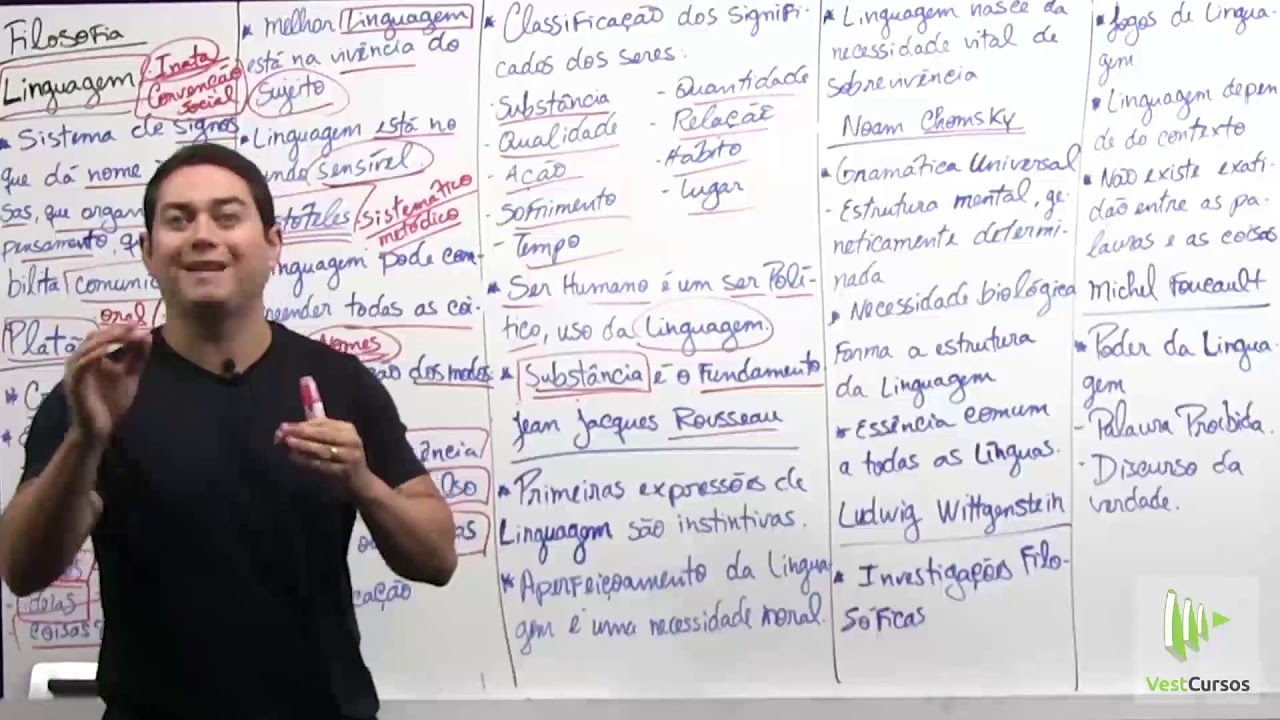 Filosofia
Linguagem
Inata
Convenção
social
* Sistema de signos
que dá nome
sas, que organ
pensamento, q
bilita comunic
oral
Platã
ideias
coisas
* melhor Linguagem
está na vivência do
Sujeito
* Linguagem está no
undo sensível.
istóteles
sistemático
metódico
inguagem pode com-
reender todas as coi-
nomes
ão dos modos
ência
lso
as
cação
* Classificação dos signifi-
cados dos seres:
- Substância
- Qualidade
- Ação
- Sofrimento
- Tempo
- Quantidade
- Relação
- Hábito
- Lugar
* Ser Humano é um ser Polí-
tico, uso da Linguagem.
* Substância é o Fundamento
Jean Jacques Rousseau
* Primeiras expressões de
Linguagem são instintivas.
* Aperfeiçoamento da Lingua
gem é uma necessidade moral.
* Linguagem nasce da
necessidade vital de
sobrevivência
Noam Chomsky
* Gramática Universal
- Estrutura mental, ge-
neticamente determi-
nada
* Necessidade biológica
Forma a estrutura
da Linguagem
* Essência comum
a todas as Línguas.
Ludwig Wittgenstein
* Investigações Filo-
sóficas
* Jogos de Lingua-
gem
* Linguagem depen
de do contexto
* Não existe exati-
dão entre as pa-
lavras e as coisas
Michel Foucault
* Poder da Lingua-
gem
- Palavra Proibida.
- Discurso da
verdade.
VestCursos